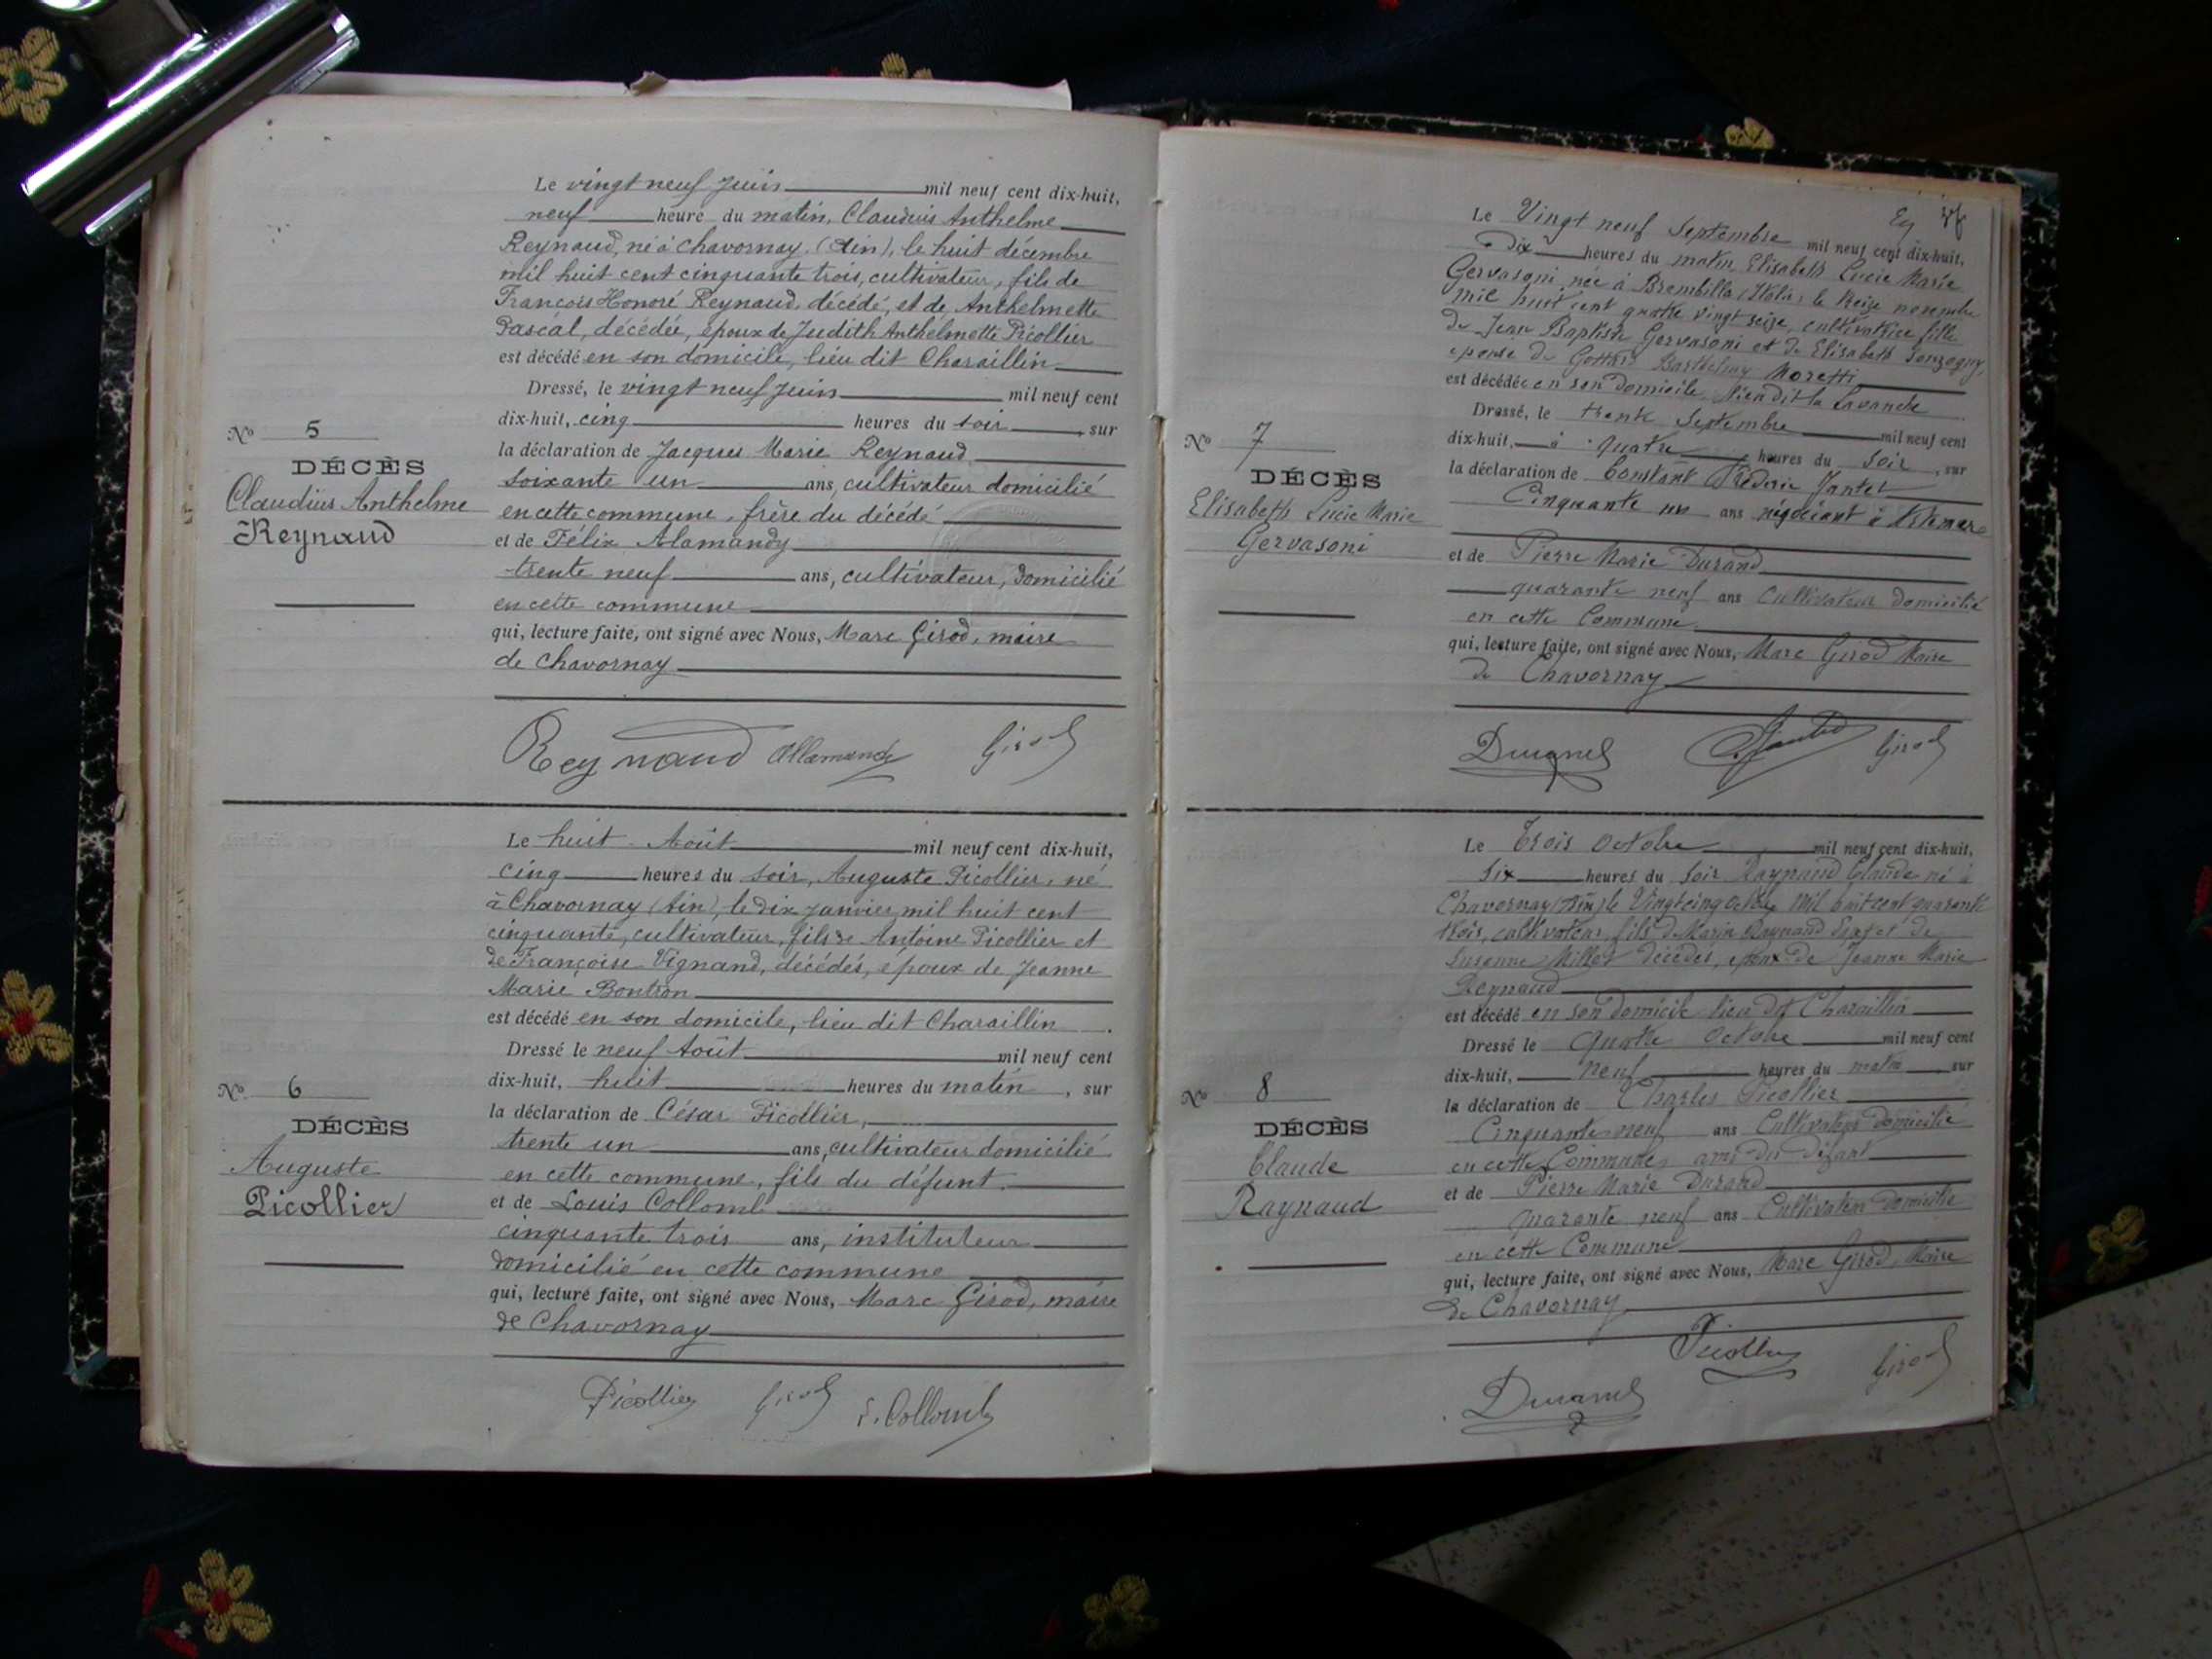 Le vingt neuf Juin mil neuf cent dix-huit,
neuf heure du matin, Claudius Anthelme
Reynaud, né à Chavornay, (Ain), le huit décembre
mil huit cent cinquante trois, cultivateur, fils de
François Honoré Reynaud, décédé, et de Anthelmette
Pascal, décédée, époux de Judith Anthelmette Picollier
est décédé en son domicile, lieu dit Charaillin
Dressé, le vingt neuf Juin mil neuf cent
dix-huit, cinq heures du soir, sur
la déclaration de Jacques Marie Reynaud
soixante un ans, cultivateur domicilié
en cette commune, frère du décédé
et de Félix Alamandy
trente neuf ans, cultivateur, domicilié
en cette commune
qui, lecture faite, ont signé avec Nous, Marc Girod, maire
de Chavornay
No 5
DÉCÈS
Claudius Anthelme
Reynaud
Reynaud Allamandy Girod
Le huit Août mil neuf cent dix-huit,
cinq heures du soir, Auguste Picollier, né
à Chavornay (Ain), le dix Janvier mil huit cent
cinquante, cultivateur, fils de Antoine Picollier et
de Françoise Vignand, décédés, époux de Jeanne
Marie Bontron
est décédé en son domicile, lieu dit Charaillin.
Dressé le neuf Août mil neuf cent
dix-huit, huit heures du matin, sur
la déclaration de César Picollier,
trente un ans, cultivateur domicilié
en cette commune, fils du défunt.
et de Louis Collomb
cinquante trois ans, instituteur
domicilié en cette commune
qui, lecture faite, ont signé avec Nous, Marc Girod, maire
de Chavornay
No 6
DÉCÈS
Auguste
Picollier
Picollier Girod L. Collomb
Le Vingt neuf Septembre mil neuf cent dix-huit,
Dix heures du matin Elisabeth Lucie Marie
Gervasoni, née à Brembilla (Italie) le treize novembre
mil huit cent quatre vingt seize, cultivatrice fille
de Jean Baptiste Gervasoni et de Elisabeth
épouse de Barthelmy Moretti
est décédée en son domicile, lieu dit la Lavanche
Dressé, le trente Septembre mil neuf cent
dix-huit, à quatre heures du soir, sur
la déclaration de Constant Frédéric Jantet
Cinquante un ans négociant à Artemare
et de Pierre Marie Durand
quarante neuf ans Cultivateur domicilié
en cette Commune
qui, lecture faite, ont signé avec Nous, Marc Girod Maire
de Chavornay
No 7
DÉCÈS
Elisabeth Lucie Marie
Gervasoni
Durand Jantet Girod
Le Trois Octobre mil neuf cent dix-huit,
Six heures du soir Raynaud Claude né à
Chavornay (Ain) le Vingt cinq Octobre Mil huit cent quarante
trois, cultivateur fils de Marin Raynaud et de
Susanne Millet décédés, époux de Jeanne Marie
Reynaud
est décédé en son domicile lieu dit Charaillin
Dressé le quatre Octobre mil neuf cent
dix-huit, neuf heures du matin, sur
la déclaration de Charles Picollier
Cinquante neuf ans Cultivateur domicilié
en cette Commune, ami du défunt
et de Pierre Marie Durand
quarante neuf ans Cultivateur domicilié
en cette Commune
qui, lecture faite, ont signé avec Nous, Marc Girod, Maire
de Chavornay
No 8
DÉCÈS
Claude
Raynaud
Picollier
Durand Girod